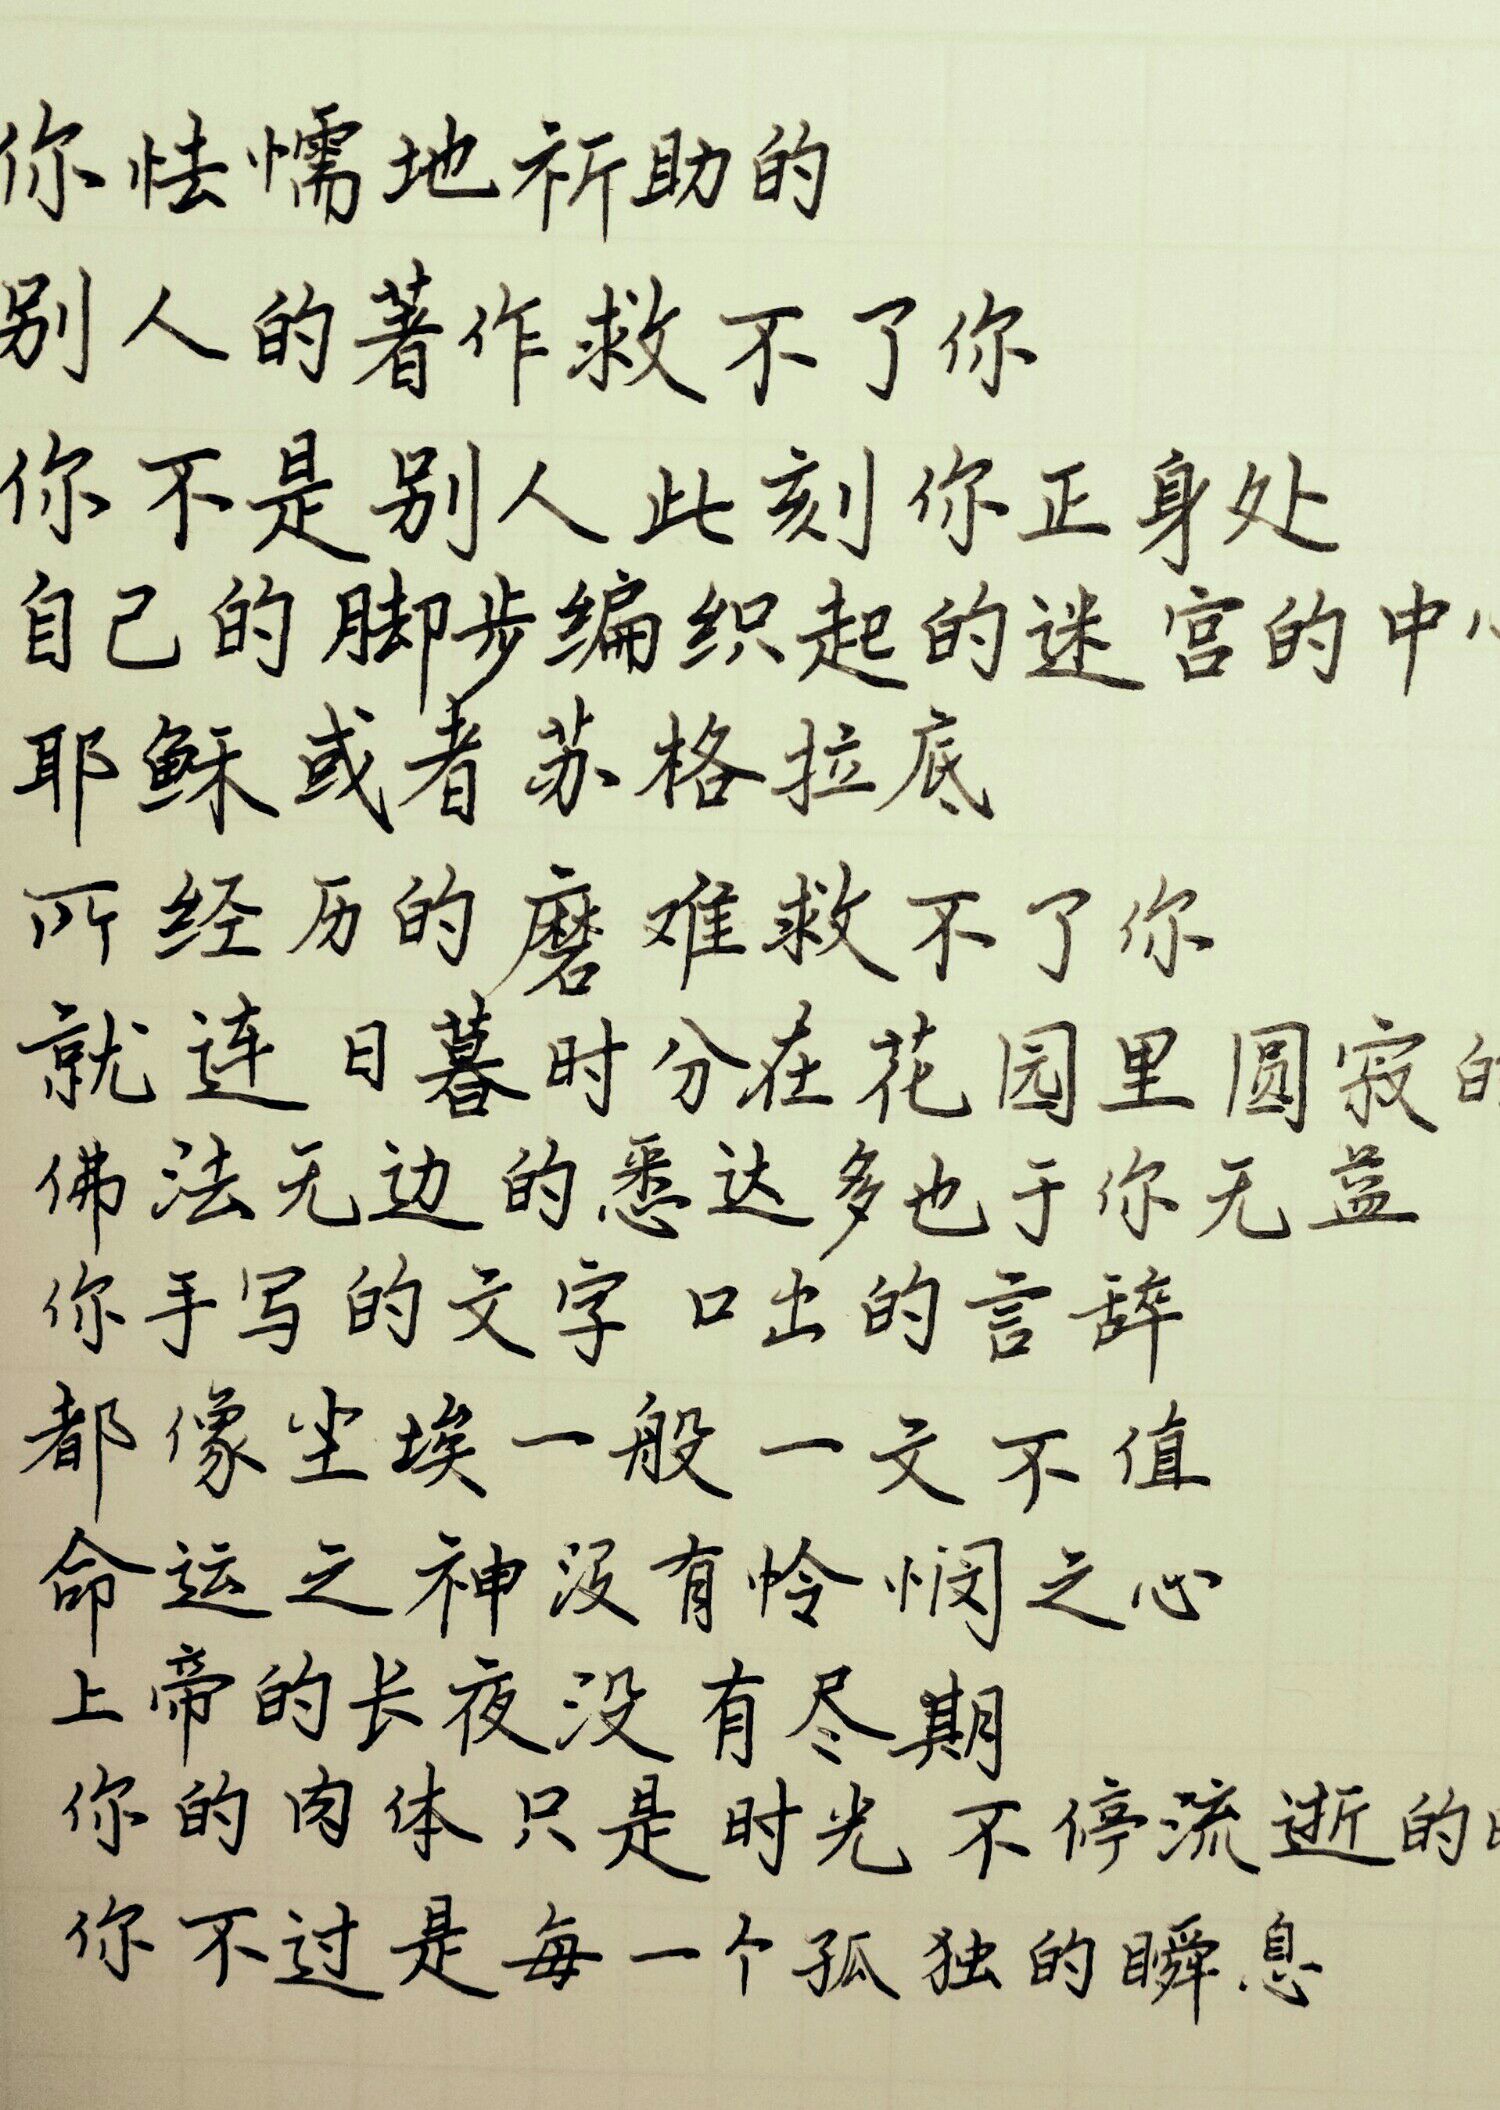 你怯懦地祈助的
别人的著作救不了你
你不是别人此刻你正身处
自己的脚步编织起的迷宫的中心
耶稣或者苏格拉底
所经历的磨难救不了你
就连日暮时分在花园里圆寂的
佛法无边的悉达多也于你无益
你手写的文字 口出的言辞
都像尘埃一般一文不值
命运之神没有怜悯之心
上帝的长夜没有尽期
你的肉体只是时光 不停流逝的
你不过是每一个孤独的瞬息